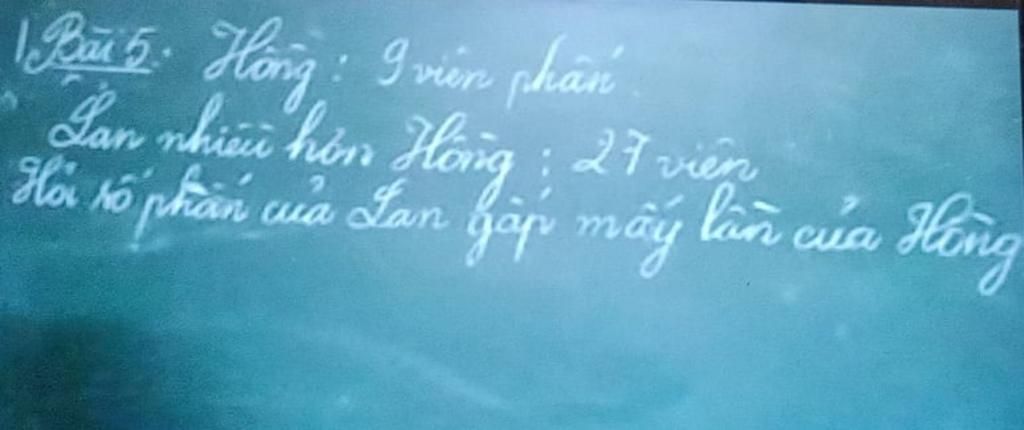 Bài 5: Hồng: 9 viên phấn
Lan nhiều hơn Hồng: 27 viên
Hỏi số phấn của Lan gấp mấy lần của Hồng